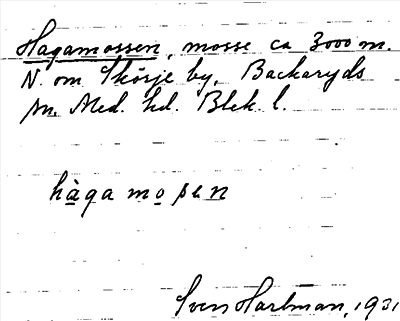 Hagamossen, mosse ca 3000 m.
N. om Skörje by, Backaryds
sn. Med. hd. Blek. l.
hàgamosen
Sven Hartman, 1931